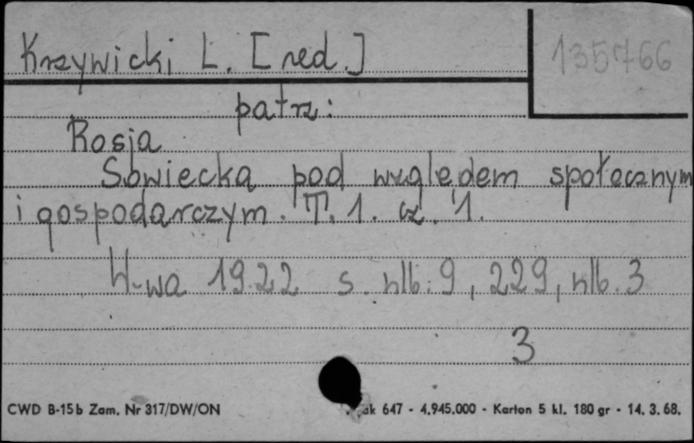 Krzywicki L. [red.]
135766
patrz:
Rosja
Sowiecka pod względem społecznym
i gospodarczym. T. 1. cz. 1.
W-wa 1922 s. nlb: 9, 229, nlb. 3
3
CWD B-15b Zam. Nr 317/DW/ON
647 - 4.945.000 - Karton 5 kl. 180 gr - 14. 3. 68.